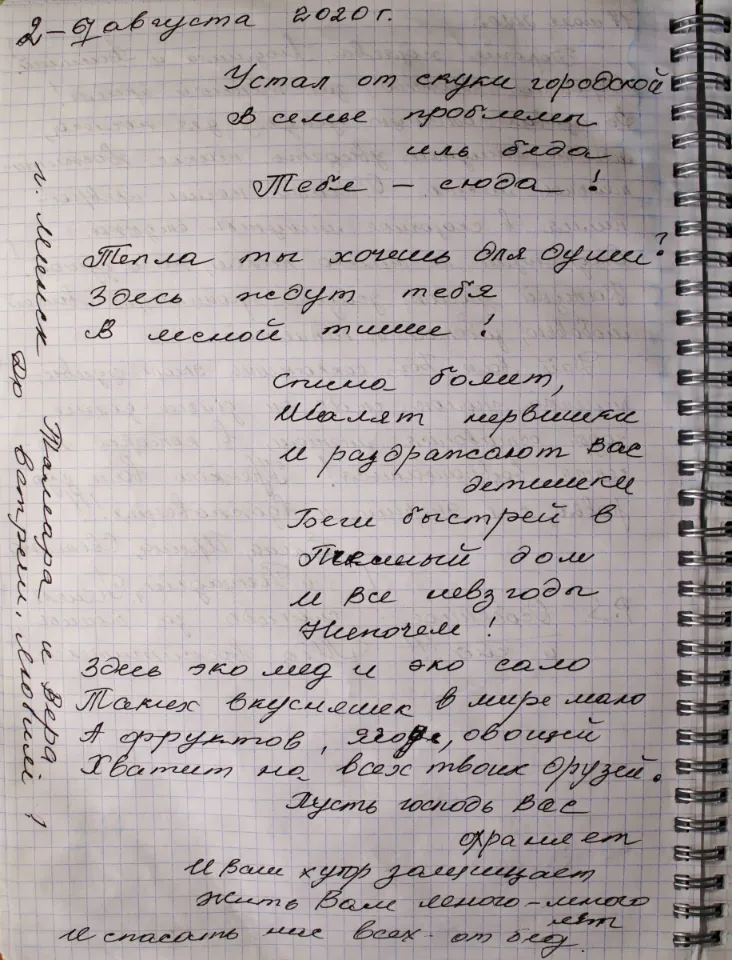 2-6 августа 2020 г.
Устал от скуки городской
В семье проблемы
иль беда
Тебе – сюда!
Тепла ты хочешь для души?
Здесь ждут тебя
В лесной тиши!
Спина болит,
Шалят нервишки
И раздражают Вас
детишки
Беги быстрей в
дом
И все невзгоды
Нипочем!
Здесь эко мед и эко сало
Таких вкусняшек в мире мало
А фруктов, ягод, овощей
Хватит на всех твоих друзей.
Пусть господь Вас
храняет
И Ваш хутор защищает
Жить Вам много-много
лет
И спасать нас всех от бед.
г. Минск Тамара и Вера
До встречи, любим!